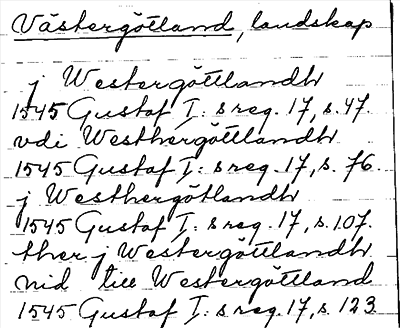 Västergötland, landskap
j Westergöttlandh
1545 Gustaf I: s reg. 17, s. 47.
vdi Westhergöttlandh
1545 Gustaf I: s reg. 17, s. 76.
j Westhergötlandh
1545 Gustaf I: s reg. 17, s. 107.
ther j Westergöttlandh
nid till Westergöttland
1545 Gustaf I: s reg. 17, s. 123